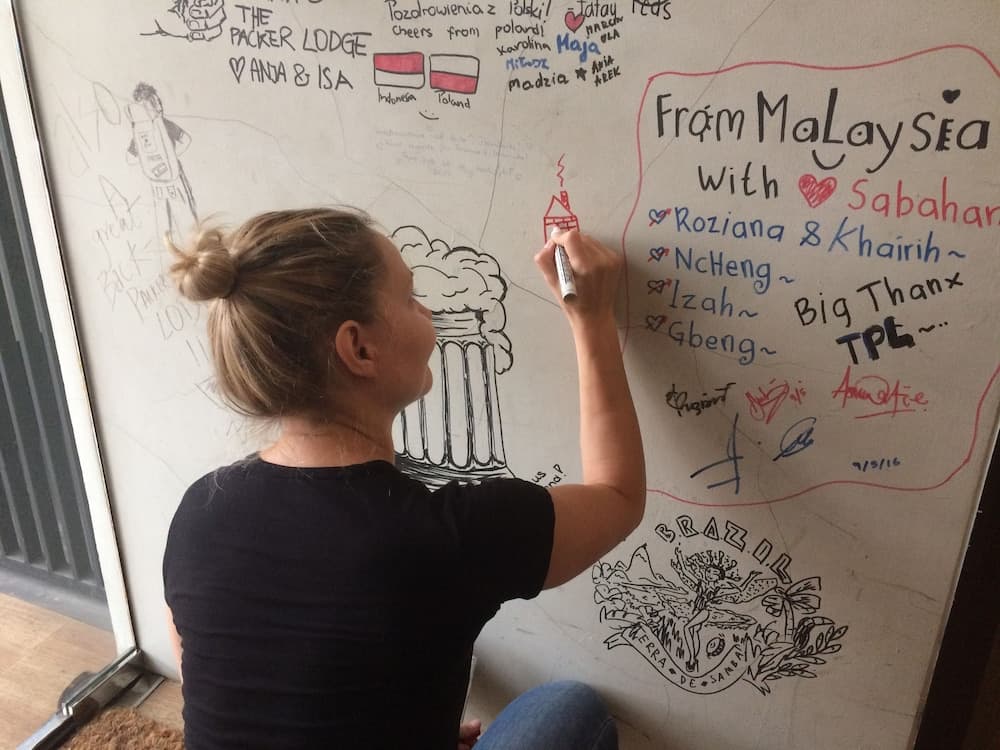 THE
PACKER LODGE
ANJA & ISA
Pozdrowienia z Polski!
cheers from poland!
Karolina Maja
Miłosz
madzia
MARCIN
OLA
ANIA
AREK
Tatay Teds
Indonesia Poland
From MaLaysia
with Sabahan
Roziana & Khairih~
NcHeng~
Izah~
Gbeng~
Big Thanx
TPL~..
9/5/16
great
Back
BRAZIL
TERRA • DE • SAMBA